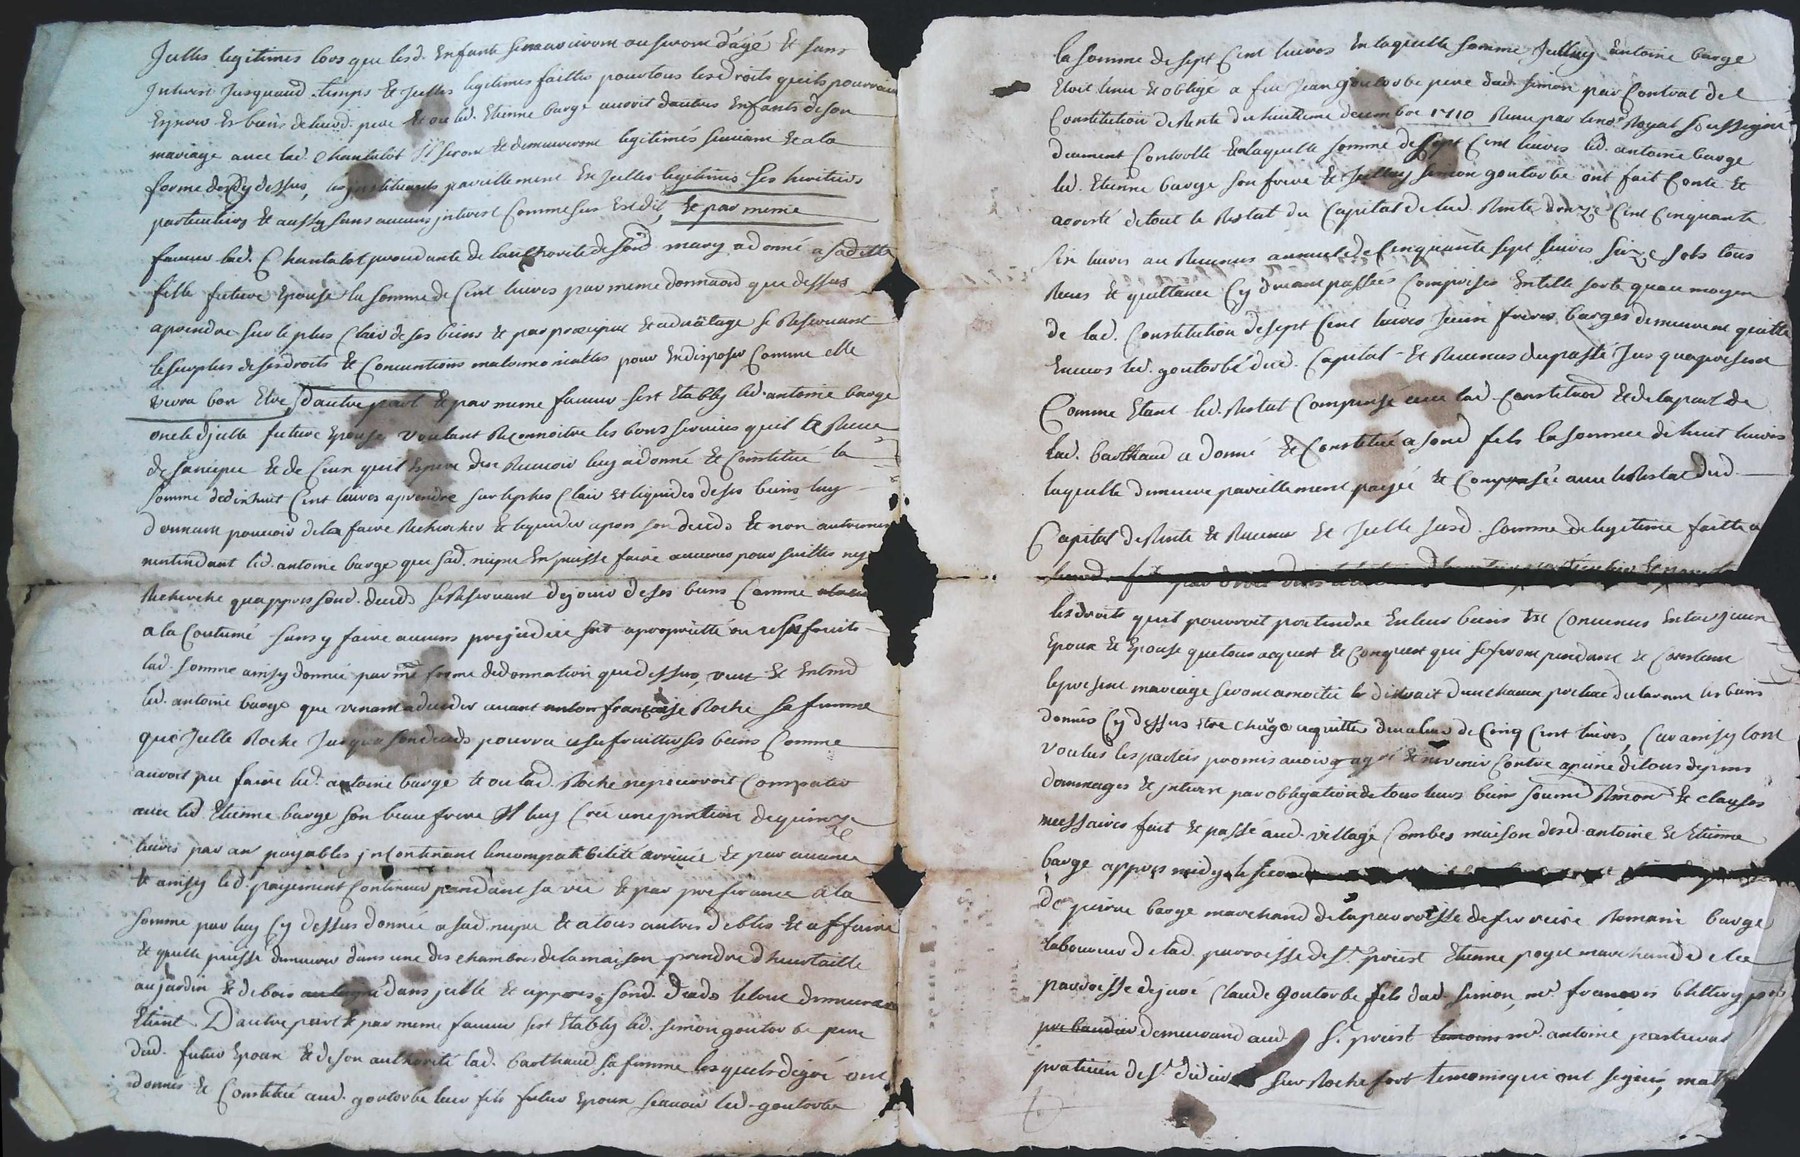 Jcelles legitimes lors que lesd. Enfants se marieront ou seront d'agé Et sans
Interest Jusquaud. temps Et Jcelles legitimes faittes pour tous lesd droits quils pourroient
Esperer Es biens de leurd. pere Et ou led. Etienne barge auroit dautres Enfants de son
mariage avec lad. Chantalot Jl seront et demeureront legitimés suivant Et a la
forme desd. Cy dessus, les instituants pareillement En Jcelles legitimes ses heritiers
particuliers Et aussy sans aucuns jnterest Comme sus Est dit, Et par meme
faveur lad. Chantalot procedante de lauthorité de sond. mary a donné a sa ditte
fille future Epouse la somme de Cent livres par meme donnaōn que dessus
a prendre sur le plus Clair de ses biens Et par precipui Et advātage se Reservant
le surplus de ses droits Et Conventions matrimonialles pour En disposer Comme elle
verra bon Etre, d'autre part Et par meme faveur sest Etably led. antoine barge
oncle djcelle future Epouse voulant Reconnoitre les bons services quil a Receu
de sa niepce Et de Ceux quil Espere den Recevoir luy a donné Et Constitué la
somme de dixhuit Cent livres a prendre sur le plus Clair Et liquides de ses biens luy
donnant pouvoir de la faire Rechercher Et liquider apres son deceds Et non autrement
nentendant led. antoine barge que sad. niepce En puisse faire aucunes poursuittes ny
Recherche quappres sond. deceds se Reservant de jouir de ses biens Comme
a la Coutume sans y faire aucuns prejudice soit a proprietté ou usufruits
lad. somme ainsy donnée par mē forme de donnation que dessus, veut Et Entend
led. antoine barge que venant a deceder avant françoise Roche sa femme
que Jcelle Roche Jusqua son deceds pourra usufruitter ses biens Comme
auroit pu faire led. antoine barge Et ou lad. Roche ne pourroit Compatir
avec led. Etienne barge son beaufrere Jl luy Crée une pention de quinze
livres par an payables jncontinant lincompatibilité arrivée Et par avance
Et ainsy led. payement Continuer pendant sa vie Et par preferance a la
somme par luy Cy dessus donnée a sad. niepce Et a tous autres debtes Et affaire
Et quelle puisse demeurer dans une des chambres de la maison prendre d'heurtaille
au jardin Et de bois dans jcelle Et appres sond. deceds le tout demeurera
Eteint. D'autre part Et par meme faveur sest Etably led. simon goutorbe pere
dud. futur Epoux Et de son authorité lad. barthaud sa femme lesquels de gré ont
donnés Et Constitué aud. goutorbe leur fils futur Epoux scavoir led. goutorbe
la somme de sept Cent livres En laquelle somme Jcelluy antoine barge
Etoit tenu Et obligé a feu Jean goutorbe pere dud. simon par Contrat de
Constitution de Rente du huitieme decembre 1710 Receu par le no.re Royal soussigné
deuement Controllé En laquelle somme de sept Cent livres led. antoine barge
led. Etienne barge son frere Et Jcelluy simon goutorbe ont fait Conte Et
arresté de tout le Restat du Capital de lad. Rente d'onze Cent Cinquante
six livres au Revenus annuel de Cinquante sept livres seize sols tous
Receus Et quittance Cy devant passées Comprises En telle sorte quau moyen
de lad. Constitution de sept Cent livres Jceux freres barges demeurent quitte
Envers led. goutorbe dud. Capital Et Revenus du passé Jusquapresent
Comme Etant led. Restat Compensé avec lad. Constituōn Et de la part de
lad. barthaud a donné Et Constitué a sond. fils la somme de huit livres
laquelle demeure pareillement payée Et Compensée avec le Restat dud.
Capital de Rente Et Revenus Et Jcelle susd. somme de legitime faitte a
les droits quil pourroit pretendre En leurs biens Et Convenus Entre jceux
Epoux Et Epouse que tous acquest Et Conquest qui se feront pendant Et Constant
le present mariage seront amoitié le
donnés Cy dessus Etre de valeur de Cinq Cent livres, Car ainsy lont
voulus les parties promis avoir agreé Et ne venir Contre a peine de tous depens
dommages Et jnterest par obligation de tous leurs biens soumōn Renonōn Et clauses
necessaires fait Et passé aud. village Combes maison desd. antoine Et Etienne
barge appres midy le second
de pierre barge marchand de la parroisse de Romain barge
laboureur de lad. parroisse de S.t priest Etienne poyet marchand de
parroisse de juré Claude goutorbe fils dud. simon, m.e françois
demeurant aud. S.t priest m.e antoine pasturel
praticien de S.t didier sur Rochefort temoins qui ont signés,